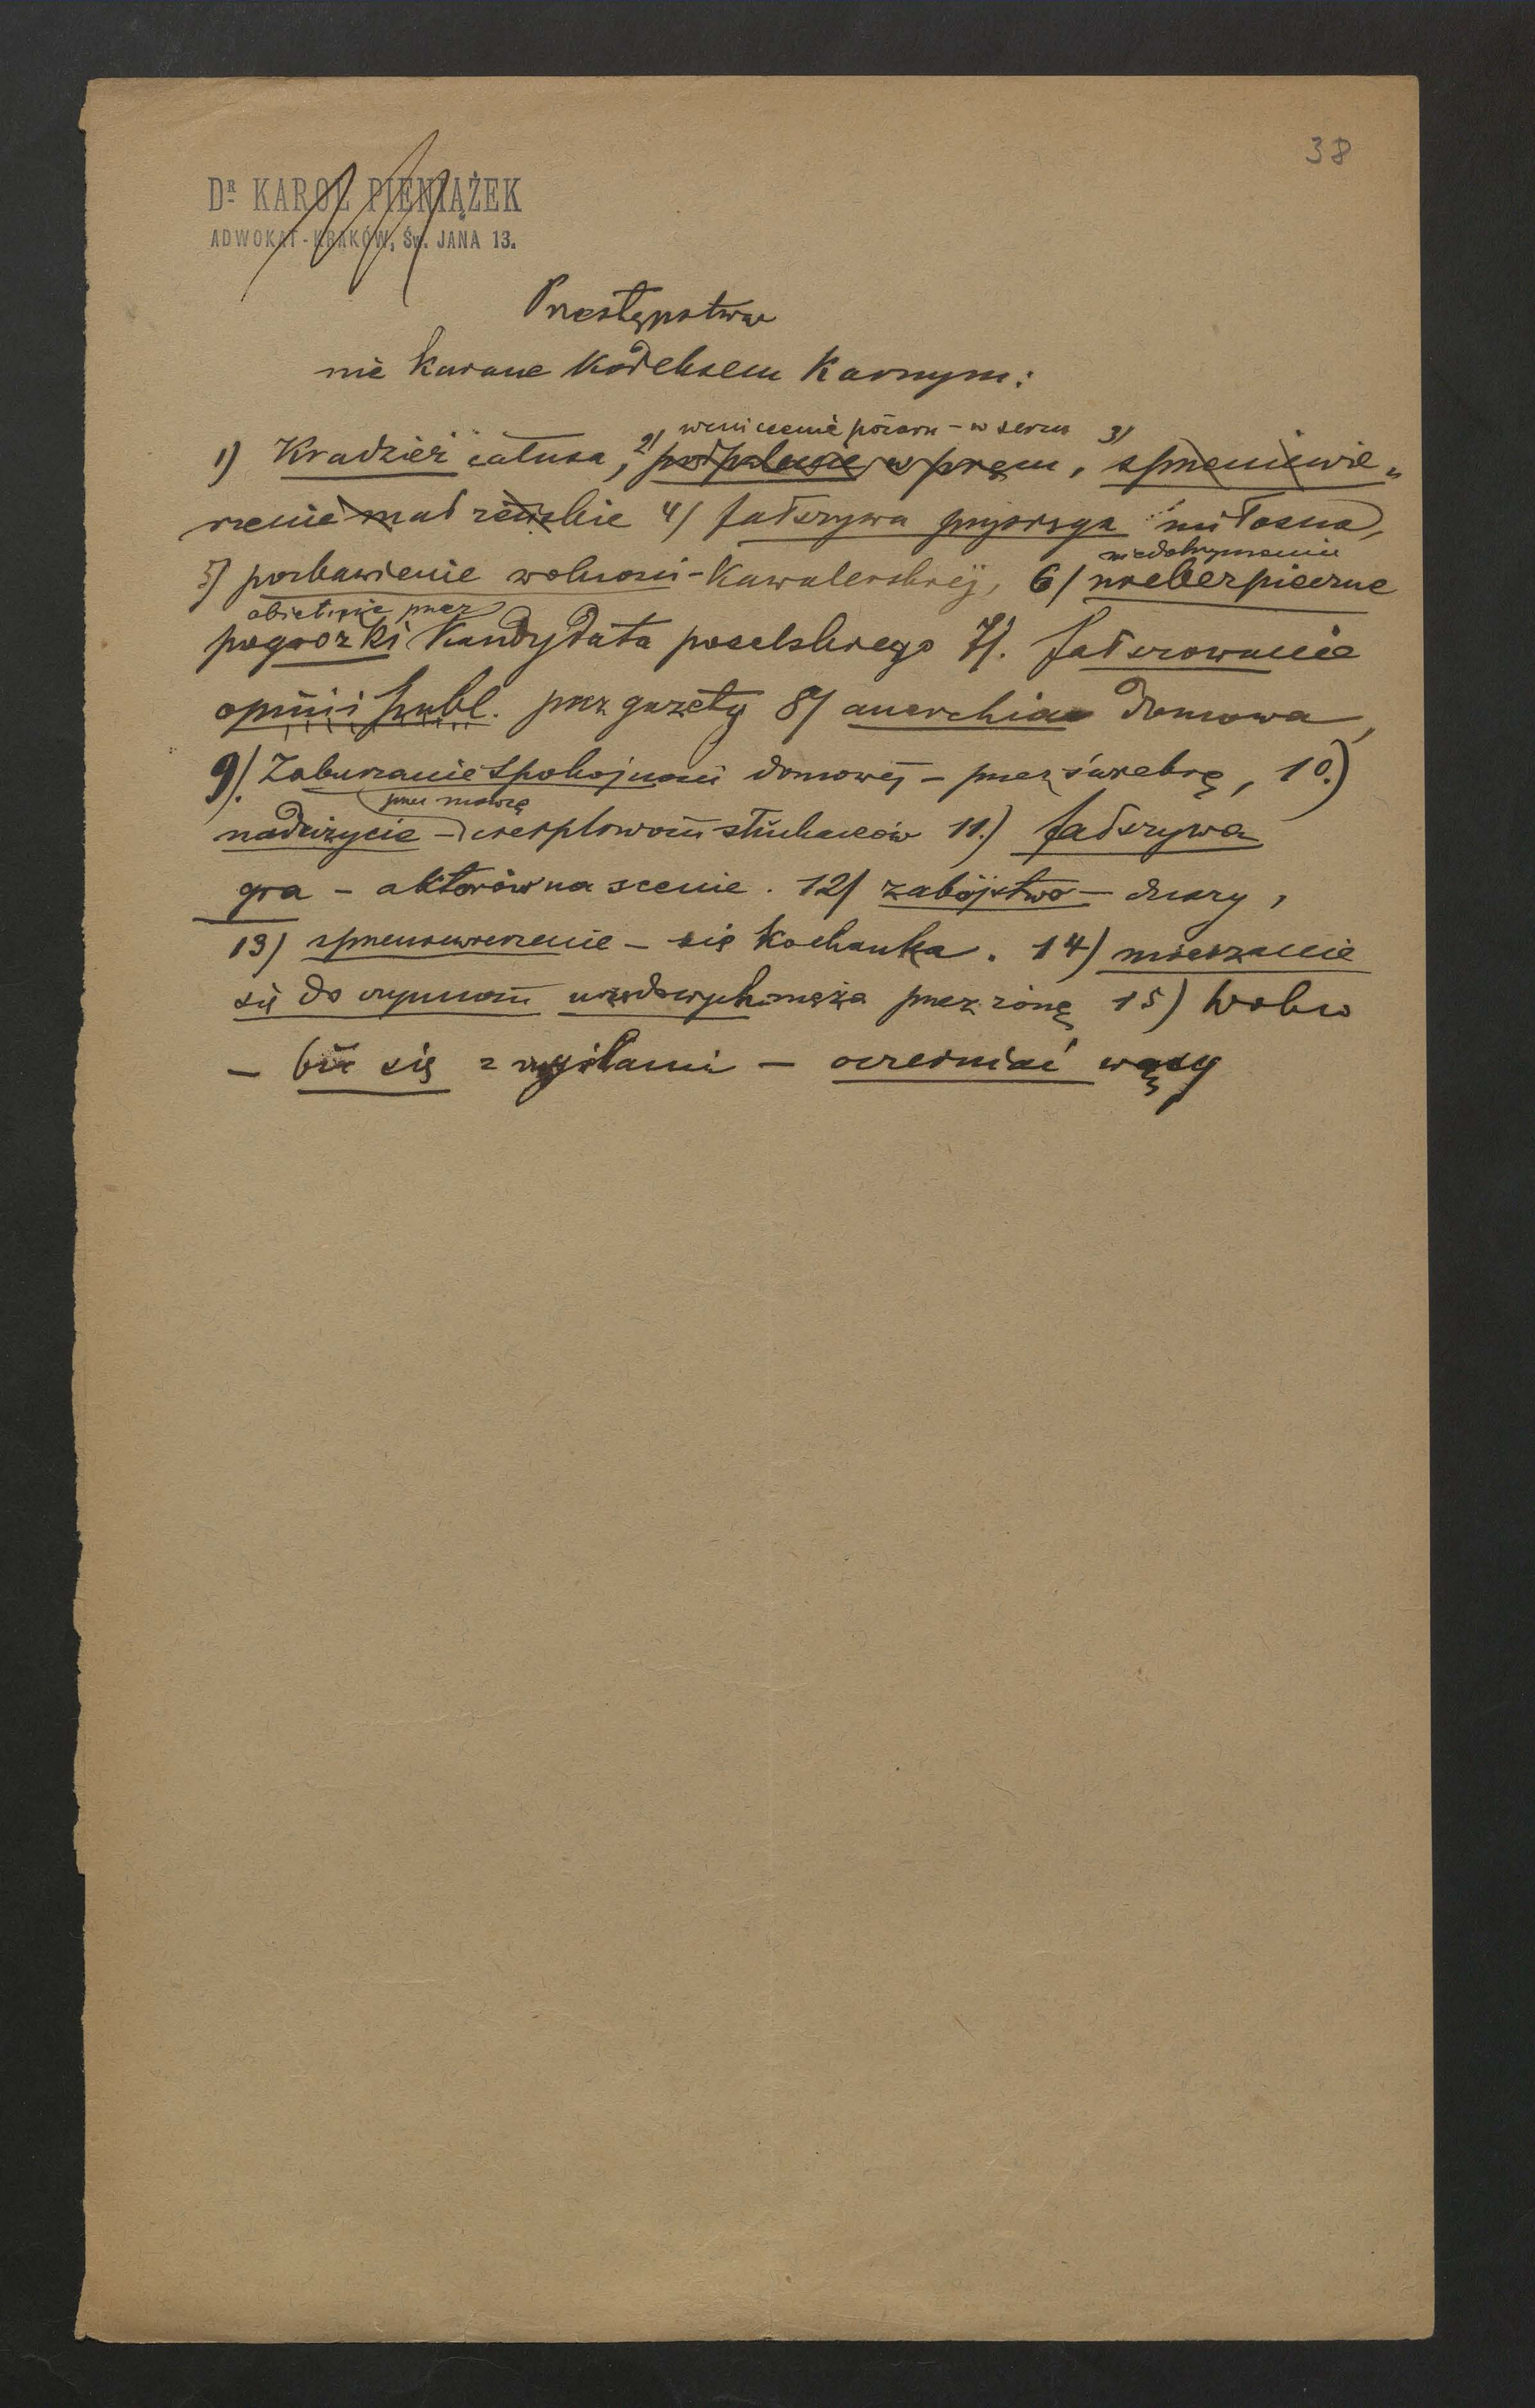 38
DR. KAROL PIENIĄŻEK
ADWOKAT - KRAKÓW, ŚW. JANA 13.
Przestępstwa
nie karane Kodeksem Karnym:
wzniecenie pożaru - w sercu
1) Kradzież całusa, 2) podpalenie w , 3) sprzeniewie„
rzenie małżeńskie 4) fałszywa przysięga miłosna,
niedotrzymanie
5) pozbawienie wolności - Kawalerskiej, 6) niebezpieczne
obietnic przez
pogrozki Kandydata poselskiego 7). fałszowanie
opinii publ. przez gazety 8) anarchia domowa,
9). Zaburzanie spokojności domowej - przez świekrę, 10.)
przez mowcę
nadużycie - cierpliwości słuchaczów 11.) fałszywa
gra - aktorów na scenie. 12) zabójstwo - duszy,
13) sprzeniewierzenie - się Kochanka. 14) mieszanie
się do czynności urzędowych męża przez żonę 15) Wolno
- bić się z myślami - oczerniać wąsy